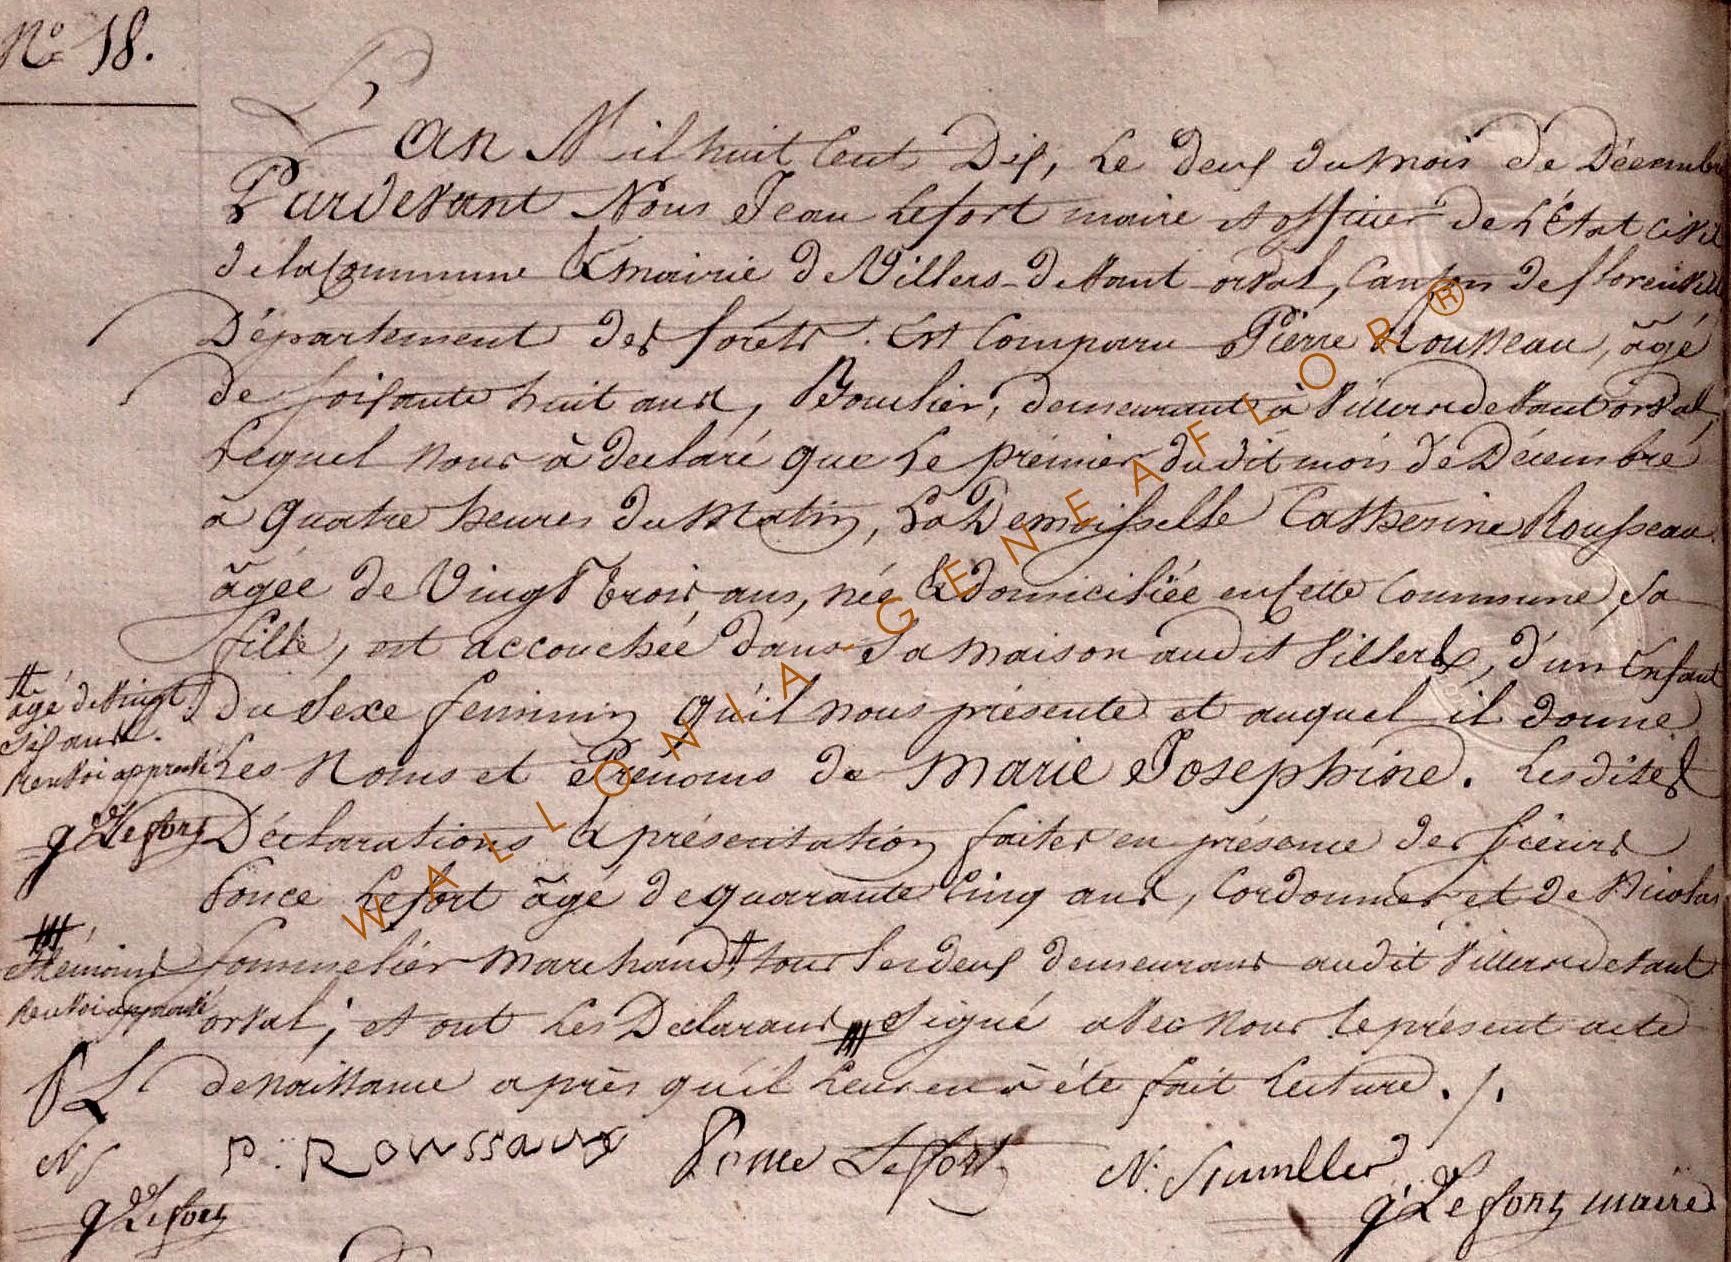 No 18.
L'an Mil huit Cent Dix, Le deux du mois de Décembre
Pardevant Nous Jean Lefort maire et officier de L'État Civil
de la Commune & mairie de Villers-devant-orval, Canton de florenville
Département des forêts. Est Comparu Pierre Rousseau, âgé
de soixante huit ans, Bouclier, demeurant à Villers devant orval,
Lequel nous à declaré que Le premier dudit mois de Décembre
à quatre heures du Matin, La Demoisselle Catherine Rousseau
âgée de Vingt trois ans, née & domiciliée en Cette Commune, sa
fille, est accouchée dans sa maison audit Villers, d'un Enfant
du Sexe feminin qu'il nous présente et auquel il donne
Les Noms et Prenoms de Marie Josephine. Lesdites
Déclarations & présentation faites en présence des sieurs
Ponce Lefort âgé de quarante Cinq ans, Cordonnier et de Nicolas
Sommelier Marchand # tous Les deux demeurans audit Villers devant
orval; et ont Les Declarans signé avec nous le présent acte
de naissance après qu'il Leur en à été fait Lecture. /.
âgé de vingt
six ans.
Renvoi approuvé
J Lefort
témoins
Renvoi approuvé
P L
N S
J Lefort
P. Roussaux
Ponce Lefort
J Lefort maire
WALLONIA-GENEAFLOR®